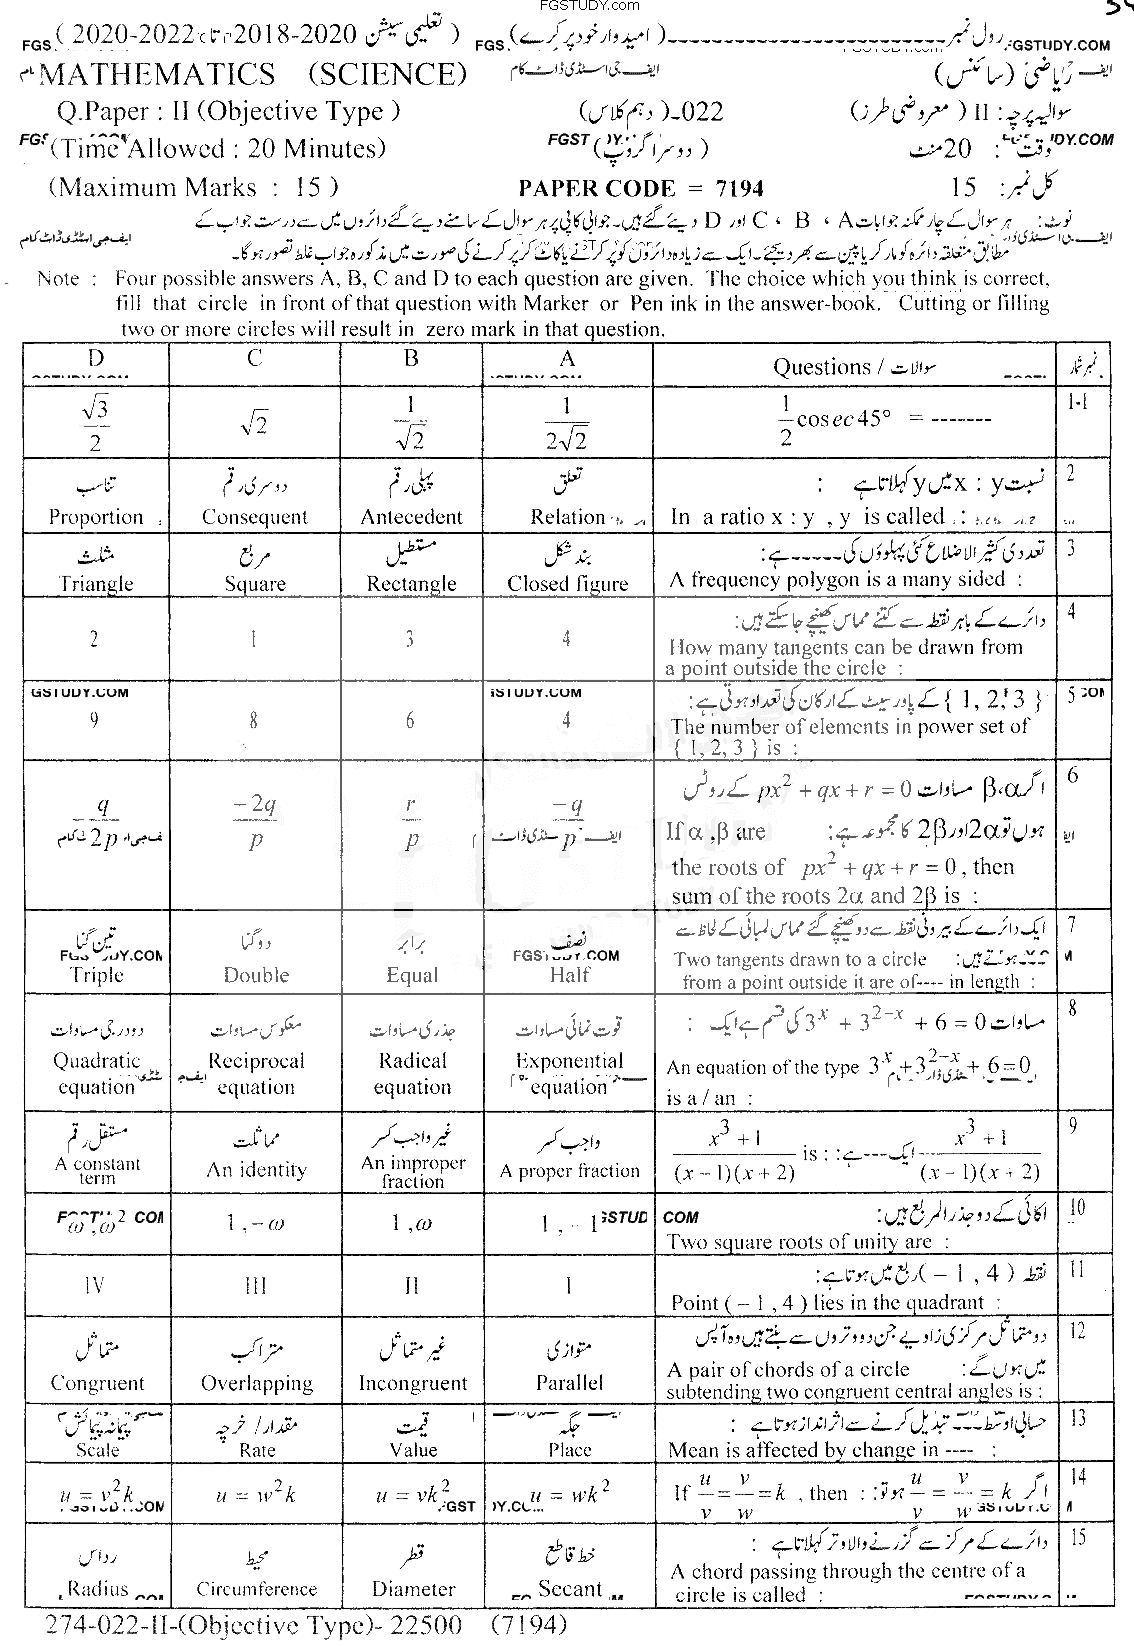 FGSTUDY.com
رول نمبر ------------------------ (امیدوار خود پر کرے) (تعلیمی سیشن 2018-2020 تا 2020-2022)
MATHEMATICS (SCIENCE) ریاضی (سائنس)
Q.Paper : II (Objective Type) 022-(دہم کلاس) سوالیہ پرچہ : II (معروضی طرز)
(Time Allowed : 20 Minutes) (دوسرا گروپ) وقت : 20 منٹ
(Maximum Marks : 15) PAPER CODE = 7194 کل نمبر : 15
نوٹ : ہر سوال کے چار ممکنہ جوابات A ، B ، C اور D دیئے گئے ہیں۔ جوابی کاپی پر ہر سوال کے سامنے دیئے گئے دائروں میں سے درست جواب کے
مطابق متعلقہ دائرہ کو مارکر یا پین سے بھر دیجئے۔ ایک سے زیادہ دائروں کو پر کرنے یا کاٹ کر پر کرنے کی صورت میں مذکورہ جواب غلط تصور ہوگا۔
Note : Four possible answers A, B, C and D to each question are given. The choice which you think is correct,
fill that circle in front of that question with Marker or Pen ink in the answer-book. Cutting or filling
two or more circles will result in zero mark in that question.
D C B A Questions / سوالات نمبر شمار
√3/2 √2 1/√2 1/2√2 1/2 cosec 45° = ------- 1-1
تناسب دوسری رقم پہلی رقم تعلق نسبت x : y میں y کہلاتا ہے : 2
Proportion Consequent Antecedent Relation In a ratio x : y , y is called :
مثلث مربع مستطیل بند شکل تعددی کثیر الاضلاع کئی پہلوؤں کی ----- ہے : 3
Triangle Square Rectangle Closed figure A frequency polygon is a many sided :
2 1 3 4 دائرے کے باہر نقطہ سے کتنے مماس کھینچے جا سکتے ہیں : 4
How many tangents can be drawn from
a point outside the circle :
9 8 6 4 { 1, 2, 3 } کے پاور سیٹ کے ارکان کی تعداد ہوتی ہے : 5
The number of elements in power set of
{ 1, 2, 3 } is :
q/2p −2q/p r/p −q/p اگر α، β مساوات px² + qx + r = 0 کے روٹس 6
ہوں تو 2α اور 2β کا مجموعہ ہے : If α ,β are
the roots of px² + qx + r = 0 , then
sum of the roots 2α and 2β is :
تین گنا دوگنا برابر نصف ایک دائرے کے بیرونی نقطہ سے دو کھینچے گئے مماس لمبائی کے لحاظ سے 7
Triple Double Equal Half Two tangents drawn to a circle ہوتے ہیں :
from a point outside it are of---- in length :
دو درجی مساوات معکوس مساوات جذری مساوات قوت نمائی مساوات مساوات 3ˣ + 3²⁻ˣ + 6 = 0 کی قسم ہے ایک : 8
Quadratic equation Reciprocal equation Radical equation Exponential equation An equation of the type 3ˣ + 3²⁻ˣ + 6 = 0
is a / an :
مستقل رقم مماثلت غیر واجب کسر واجب کسر x³ + 1 / (x − 1)(x + 2) ایک --- ہے : 9
A constant term An identity An improper fraction A proper fraction x³ + 1 / (x − 1)(x + 2) is :
ω , ω² 1 , −ω 1 , ω 1 , − 1 اکائی کے دو جذر المربع ہیں : 10
Two square roots of unity are :
IV III II I نقطہ ( − 1 , 4 ) ربع میں ہوتا ہے : 11
Point ( − 1 , 4 ) lies in the quadrant :
متماثل متراکب غیر متماثل متوازی دو متماثل مرکزی زاویے جن دو وتروں سے بنتے ہیں وہ آپس 12
Congruent Overlapping Incongruent Parallel A pair of chords of a circle میں ہوں گے :
subtending two congruent central angles is :
پیمانہ پیمائش مقدار / خرچہ قیمت جگہ حسابی اوسط --- تبدیل کرنے سے اثر انداز ہوتا ہے : 13
Scale Rate Value Place Mean is affected by change in ---- :
u = v²k u = w²k u = vk² u = wk² اگر u/v = v/w = k ہو تو : 14
If u/v = v/w = k , then :
رداس محیط قطر خط قاطع دائرے کے مرکز سے گزرنے والا وتر کہلاتا ہے : 15
Radius Circumference Diameter Secant A chord passing through the centre of a
circle is called :
274-022-II-(Objective Type)- 22500 (7194)